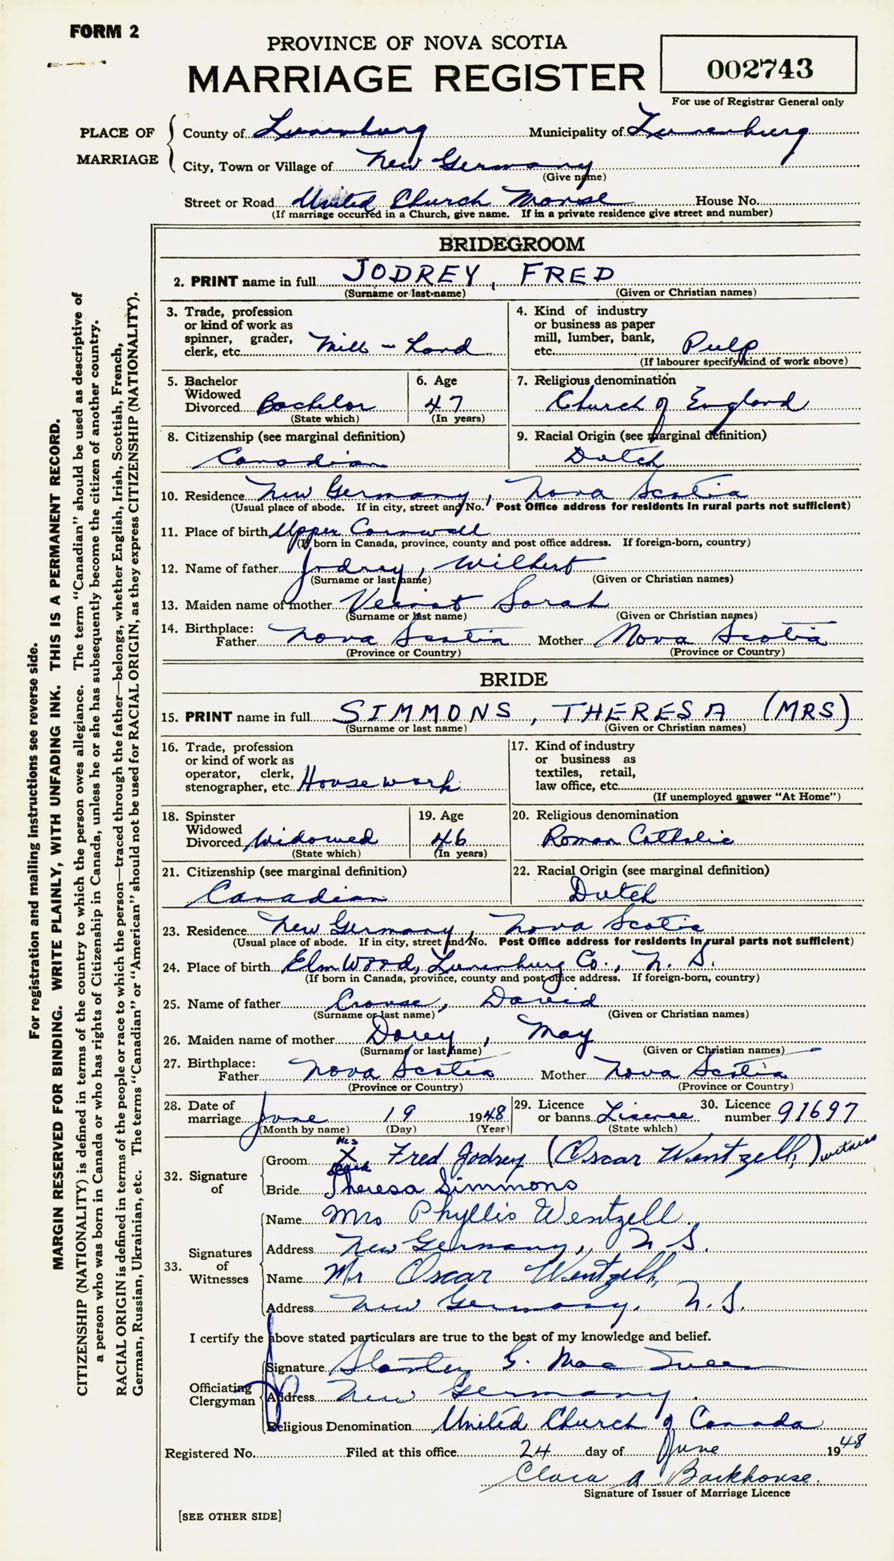 FORM 2
PROVINCE OF NOVA SCOTIA
MARRIAGE REGISTER
002743
For use of Registrar General only
PLACE OF MARRIAGE
County of Lunenburg Municipality of Lunenburg
City, Town or Village of New Germany
(Give name)
Street or Road United Church Manse House No.
(If marriage occurred in a Church, give name. If in a private residence give street and number)
BRIDEGROOM
2. PRINT name in full JODREY, FRED
(Surname or last name) (Given or Christian names)
3. Trade, profession or kind of work as spinner, grader, clerk, etc. Mill - Hand
4. Kind of industry or business as paper mill, lumber, bank, etc. Pulp
(If labourer specify kind of work above)
5. Bachelor Widowed Divorced Bachelor
(State which)
6. Age 47
(In years)
7. Religious denomination Church of England
8. Citizenship (see marginal definition) Canadian
9. Racial Origin (see marginal definition) Dutch
10. Residence New Germany, Nova Scotia
(Usual place of abode. If in city, street and No. Post Office address for residents in rural parts not sufficient)
11. Place of birth Upper Cornwall
(If born in Canada, province, county and post office address. If foreign-born, country)
12. Name of father Jodrey, Wilbert
(Surname or last name) (Given or Christian names)
13. Maiden name of mother Veinot Sarah
(Surname or last name) (Given or Christian names)
14. Birthplace: Father Nova Scotia Mother Nova Scotia
(Province or Country) (Province or Country)
BRIDE
15. PRINT name in full SIMMONS, THERESA (MRS)
(Surname or last name) (Given or Christian names)
16. Trade, profession or kind of work as operator, clerk, stenographer, etc. Housework
17. Kind of industry or business as textiles, retail, law office, etc.
(If unemployed answer "At Home")
18. Spinster Widowed Divorced Widowed
(State which)
19. Age 46
(In years)
20. Religious denomination Roman Catholic
21. Citizenship (see marginal definition) Canadian
22. Racial Origin (see marginal definition) Dutch
23. Residence New Germany, Nova Scotia
(Usual place of abode. If in city, street and No. Post Office address for residents in rural parts not sufficient)
24. Place of birth Elmwood, Lunenburg Co., N. S.
(If born in Canada, province, county and post office address. If foreign-born, country)
25. Name of father Crouse, David
(Surname or last name) (Given or Christian names)
26. Maiden name of mother Dorey, May
(Surname or last name) (Given or Christian names)
27. Birthplace: Father Nova Scotia Mother Nova Scotia
(Province or Country) (Province or Country)
28. Date of marriage June 19 1948
(Month by name) (Day) (Year)
29. Licence or banns Lisense
(State which)
30. Licence number 91697
32. Signature of
Groom his X mark Fred Jodrey (Oscar Wentzell,) witness
Bride Theresa Simmons
33. Signatures of Witnesses
Name Mrs Phyllis Wentzell
Address New Germany, N S.
Name Mr Oscar Wentzell
Address New Germany, N. S.
I certify the above stated particulars are true to the best of my knowledge and belief.
Officiating Clergyman
Signature Stanley G. Mac
Address New Germany.
Religious Denomination United Church of Canada
Registered No. Filed at this office 24 day of June 1948
Clara A Barkhouse.
Signature of Issuer of Marriage Licence
[SEE OTHER SIDE]
For registration and mailing instructions see reverse side.
MARGIN RESERVED FOR BINDING. WRITE PLAINLY, WITH UNFADING INK. THIS IS A PERMANENT RECORD.
CITIZENSHIP (NATIONALITY) is defined in terms of the country to which the person owes allegiance. The term "Canadian" should be used as descriptive of
a person who was born in Canada or who has rights of Citizenship in Canada, unless he or she has subsequently become the citizen of another country.
RACIAL ORIGIN is defined in terms of the people or race to which the person—traced through the father—belongs, whether English, Irish, Scottish, French,
German, Russian, Ukrainian, etc. The terms "Canadian" or "American" should not be used for RACIAL ORIGIN, as they express CITIZENSHIP (NATIONALITY).